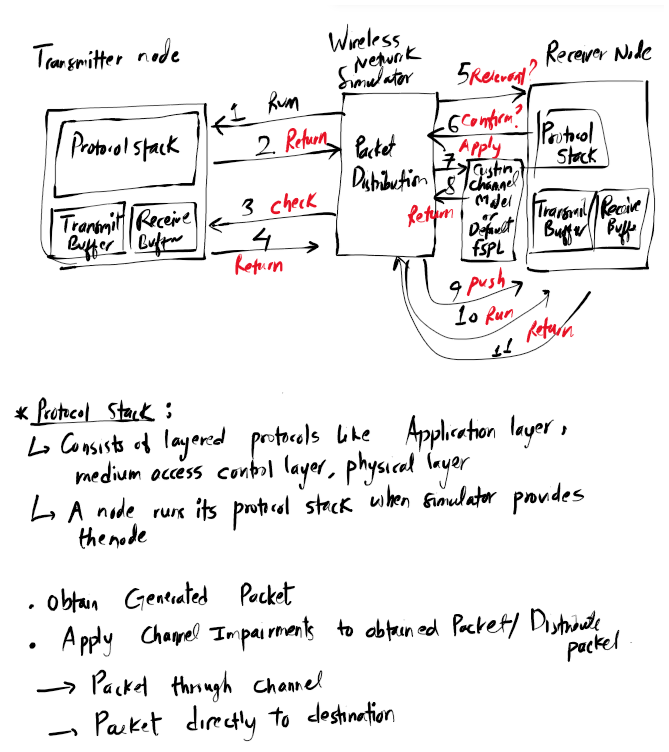 Transmitter node
Wireless
Network
Simulator
Receiver Node
1 Run
2 Return
3 check
4
Return
Protocol stack
Transmit
Buffer
Receive
Buffer
Packet
Distribution
5 Relevant?
6 Confirm?
Apply
7
8
Return
Custom
channel
Model
or
Default
FSPL
Protocol
Stack
Transmit
Buffer
Receive
Buffe
9 push
10 Run
11 Return
* Protocol Stack :
↳ Consists of layered protocols like Application layer,
medium access control layer, physical layer
↳ A node runs its protocol stack when simulator provides
the node
• Obtain Generated Packet
• Apply Channel Impairments to obtained Packet/ Distribute
packet.
→ Packet through channel
→ Packet directly to destination